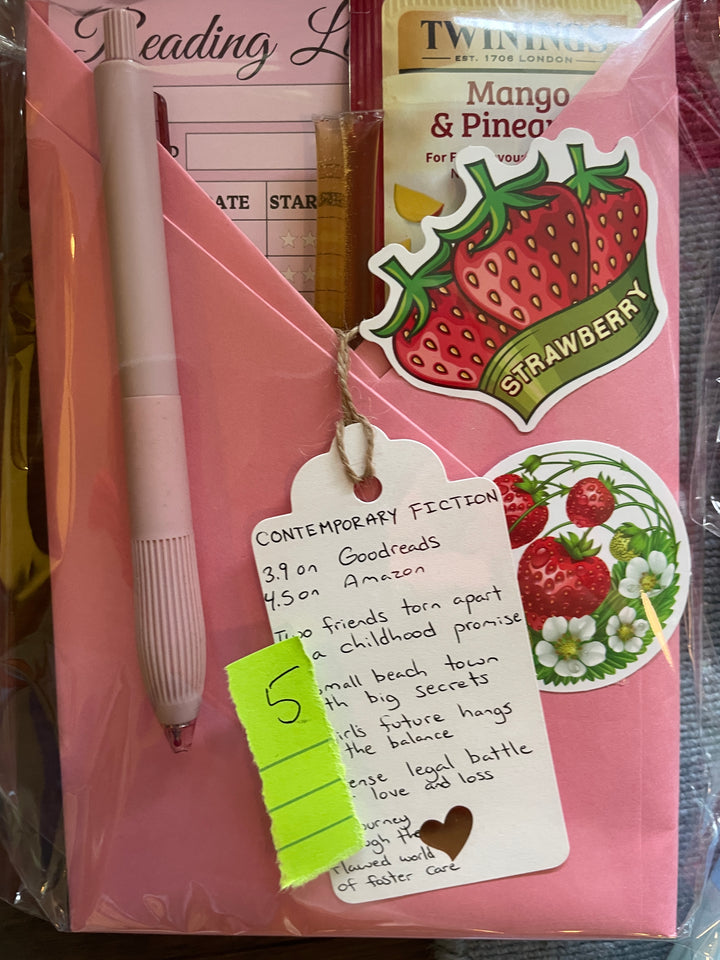 Reading L
TWININGS
EST. 1706 LONDON
Mango
& Pineap
For F
your
N
D
ATE
STAR
STRAWBERRY
CONTEMPORARY FICTION
3.9 on Goodreads
4.5 on Amazon
Two friends torn apart
a childhood promise
small beach town
th big secrets
irl's future hangs
the balance
ense legal battle
love and loss
ourney
ough the
flawed world
of foster care
5